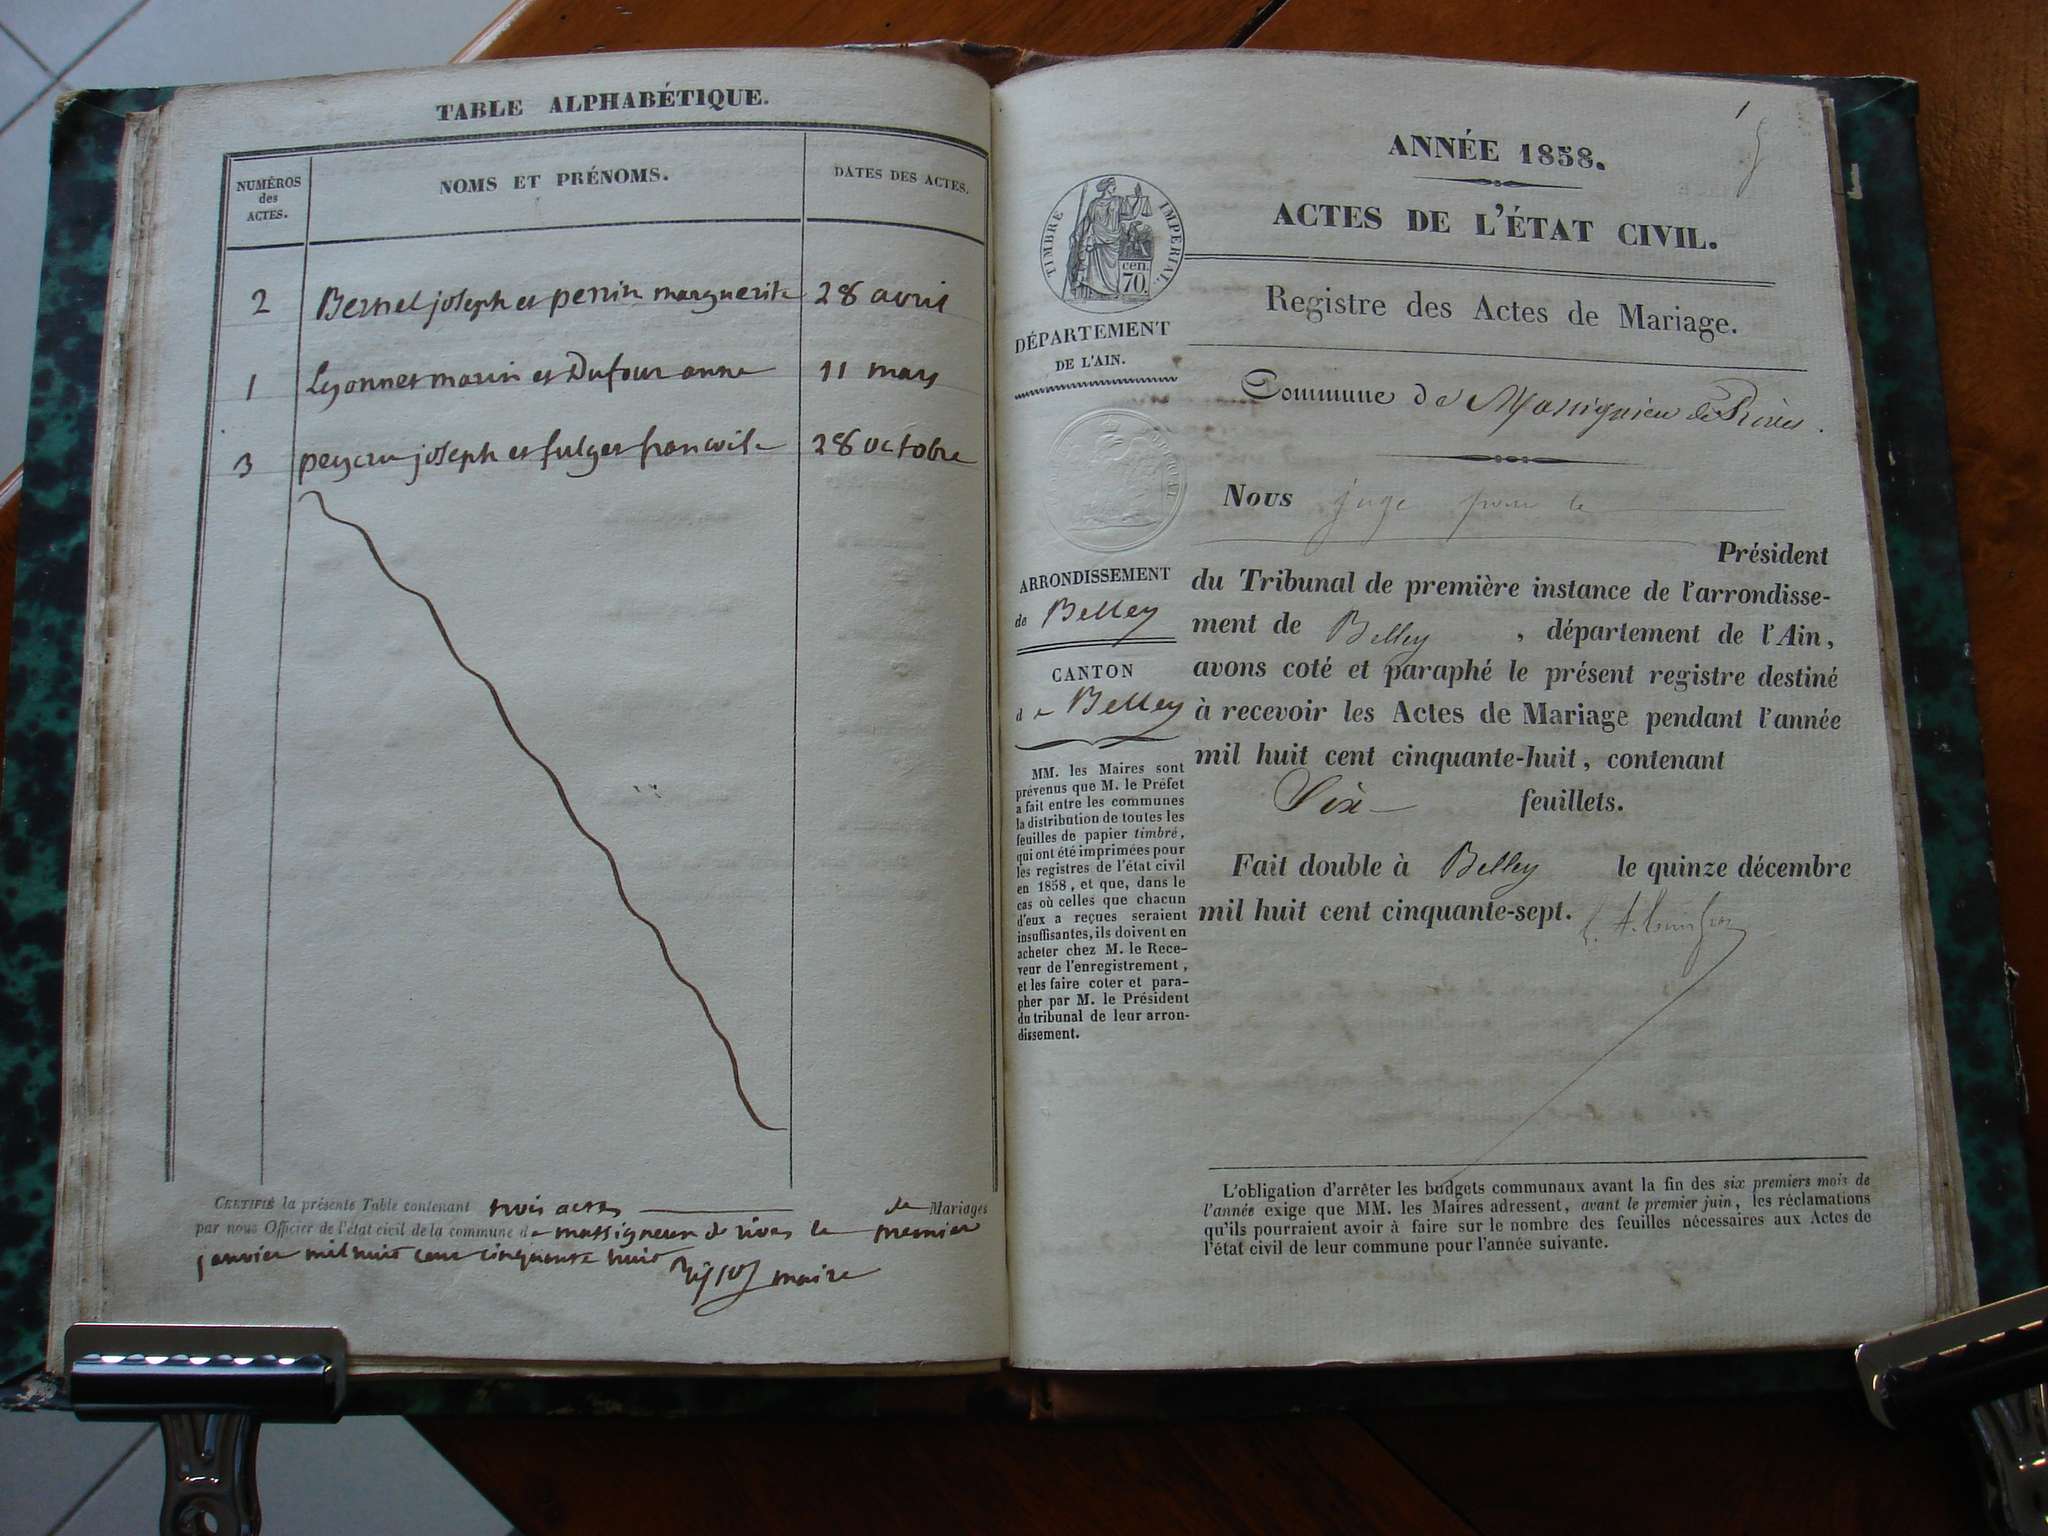 TABLE ALPHABÉTIQUE.
NUMÉROS
des
ACTES.
NOMS ET PRÉNOMS.
DATES DES ACTES.
2 Bernel joseph et perrin marguerite 28 avril
1 Lyonnet marin et Dufour anne 11 mars
3 peycru joseph et fulger francoise 28 octobre
CERTIFIÉ la présente Table contenant trois actes de Mariages
par nous Officier de l'état civil de la commune de massigneux de rives le premier
janvier mil huit cent cinquante huit
maire
1
ANNÉE 1858.
ACTES DE L'ÉTAT CIVIL.
TIMBRE IMPERIAL.
cen.
70.
Registre des Actes de Mariage.
DÉPARTEMENT
DE L'AIN.
Commune de Massignieu de Rives.
Nous juge pour le
Président
du Tribunal de première instance de l'arrondisse-
ment de Belley, département de l'Ain,
avons coté et paraphé le présent registre destiné
à recevoir les Actes de Mariage pendant l'année
mil huit cent cinquante-huit, contenant
Six feuillets.
Fait double à Belley le quinze décembre
mil huit cent cinquante-sept.
ARRONDISSEMENT
de Belley
CANTON
de Belley
MM. les Maires sont
prévenus que M. le Préfet
a fait entre les communes
la distribution de toutes les
feuilles de papier timbré,
qui ont été imprimées pour
les registres de l'état civil
en 1858, et que, dans le
cas où celles que chacun
d'eux a reçues seraient
insuffisantes, ils doivent en
acheter chez M. le Rece-
veur de l'enregistrement,
et les faire coter et para-
pher par M. le Président
du tribunal de leur arron-
dissement.
L'obligation d'arrêter les budgets communaux avant la fin des six premiers mois de
l'année exige que MM. les Maires adressent, avant le premier juin, les réclamations
qu'ils pourraient avoir à faire sur le nombre des feuilles nécessaires aux Actes de
l'état civil de leur commune pour l'année suivante.